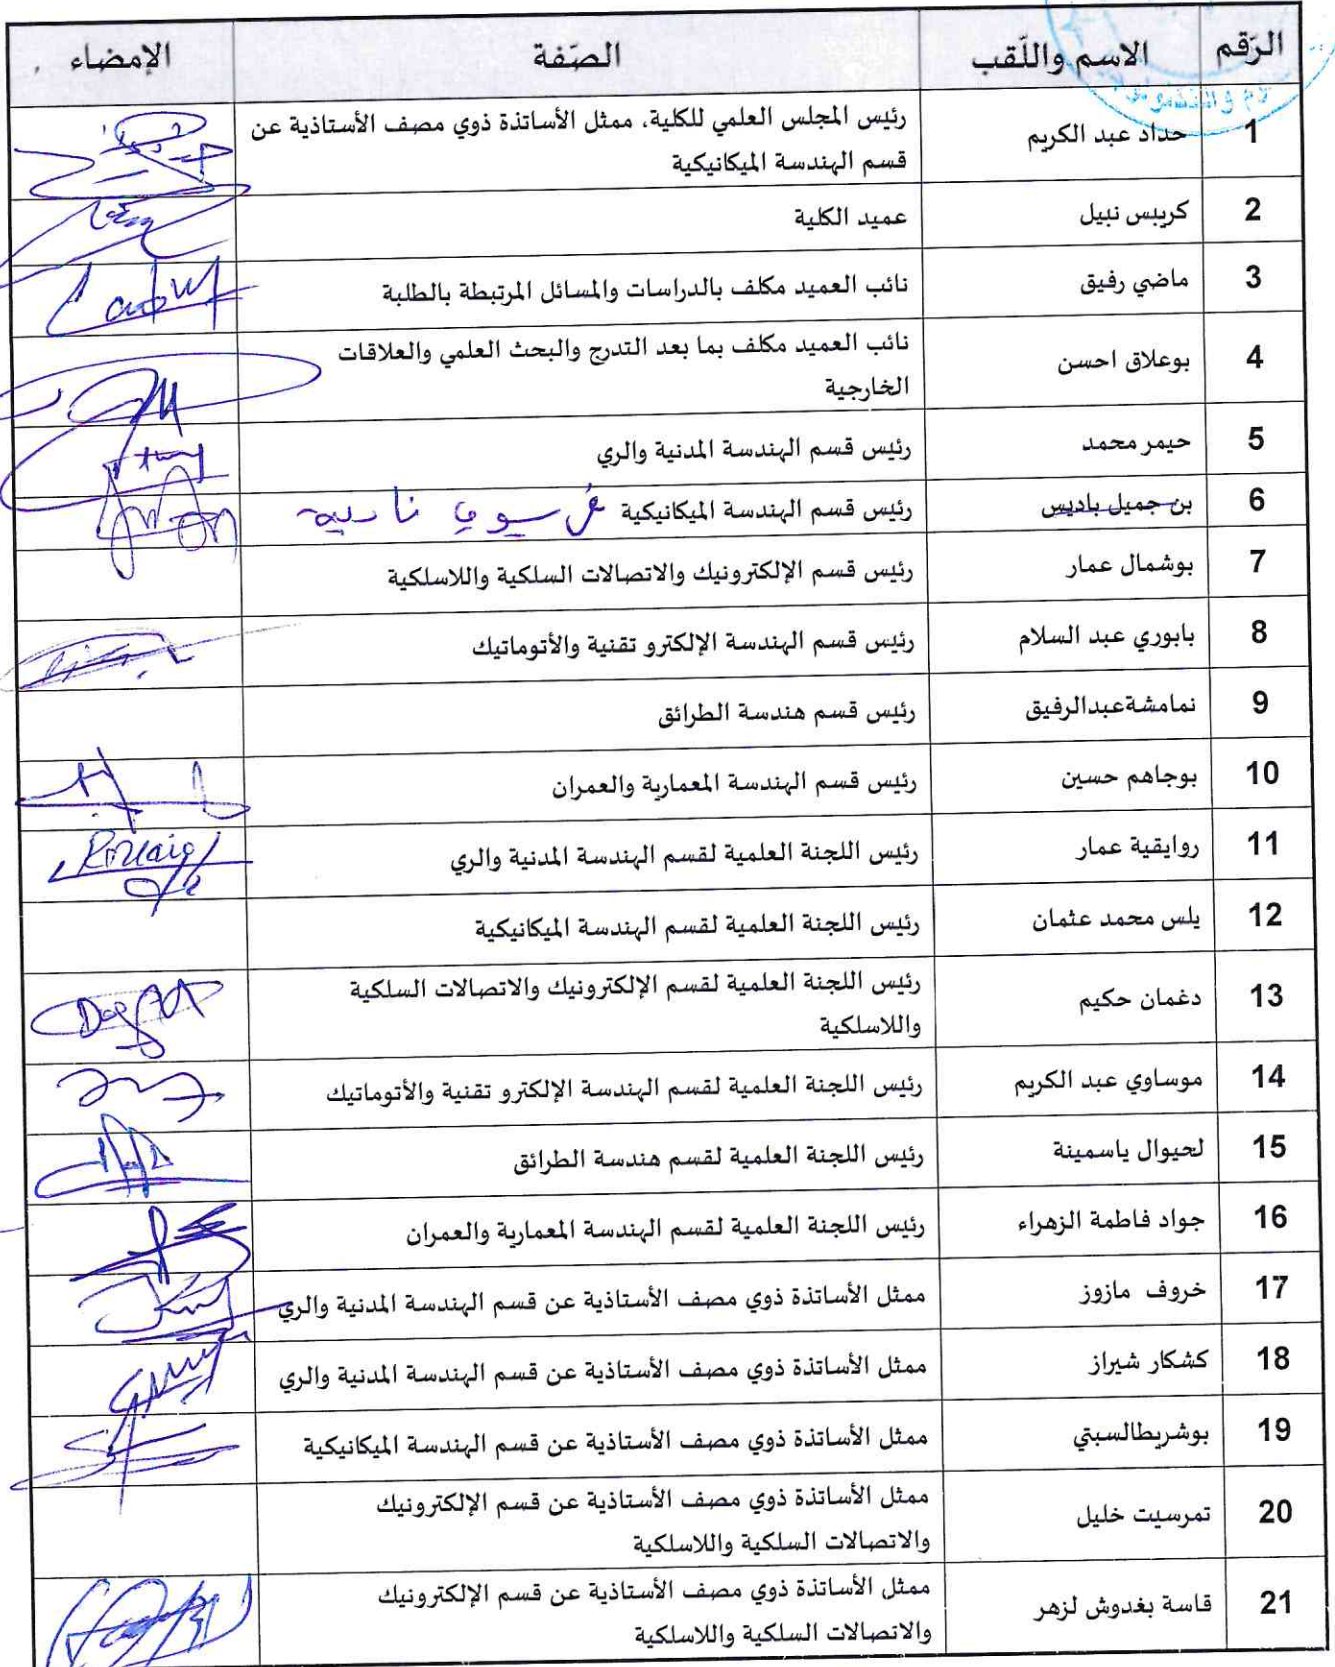 الرّقم الاسم واللّقب الصّفة الإمضاء
1 حداد عبد الكريم رئيس المجلس العلمي للكلية، ممثل الأساتذة ذوي مصف الأستاذية عن
قسم الهندسة الميكانيكية
2 كريبس نبيل عميد الكلية
3 ماضي رفيق نائب العميد مكلف بالدراسات والمسائل المرتبطة بالطلبة
4 بوعلاق احسن نائب العميد مكلف بما بعد التدرج والبحث العلمي والعلاقات
الخارجية
5 حيمر محمد رئيس قسم الهندسة المدنية والري
6 بن جميل باديس رئيس قسم الهندسة الميكانيكية
7 بوشمال عمار رئيس قسم الإلكترونيك والاتصالات السلكية واللاسلكية
8 بابوري عبد السلام رئيس قسم الهندسة الإلكترو تقنية والأتوماتيك
9 نمامشةعبدالرفيق رئيس قسم هندسة الطرائق
10 بوجاهم حسين رئيس قسم الهندسة المعمارية والعمران
11 روايقية عمار رئيس اللجنة العلمية لقسم الهندسة المدنية والري
12 يلس محمد عثمان رئيس اللجنة العلمية لقسم الهندسة الميكانيكية
13 دغمان حكيم رئيس اللجنة العلمية لقسم الإلكترونيك والاتصالات السلكية
واللاسلكية
14 موساوي عبد الكريم رئيس اللجنة العلمية لقسم الهندسة الإلكترو تقنية والأتوماتيك
15 لحيوال ياسمينة رئيس اللجنة العلمية لقسم هندسة الطرائق
16 جواد فاطمة الزهراء رئيس اللجنة العلمية لقسم الهندسة المعمارية والعمران
17 خروف مازوز ممثل الأساتذة ذوي مصف الأستاذية عن قسم الهندسة المدنية والري
18 كشكار شيراز ممثل الأساتذة ذوي مصف الأستاذية عن قسم الهندسة المدنية والري
19 بوشريطالسبتي ممثل الأساتذة ذوي مصف الأستاذية عن قسم الهندسة الميكانيكية
20 تمرسيت خليل ممثل الأساتذة ذوي مصف الأستاذية عن قسم الإلكترونيك
والاتصالات السلكية واللاسلكية
21 قاسة بغدوش لزهر ممثل الأساتذة ذوي مصف الأستاذية عن قسم الإلكترونيك
والاتصالات السلكية واللاسلكية